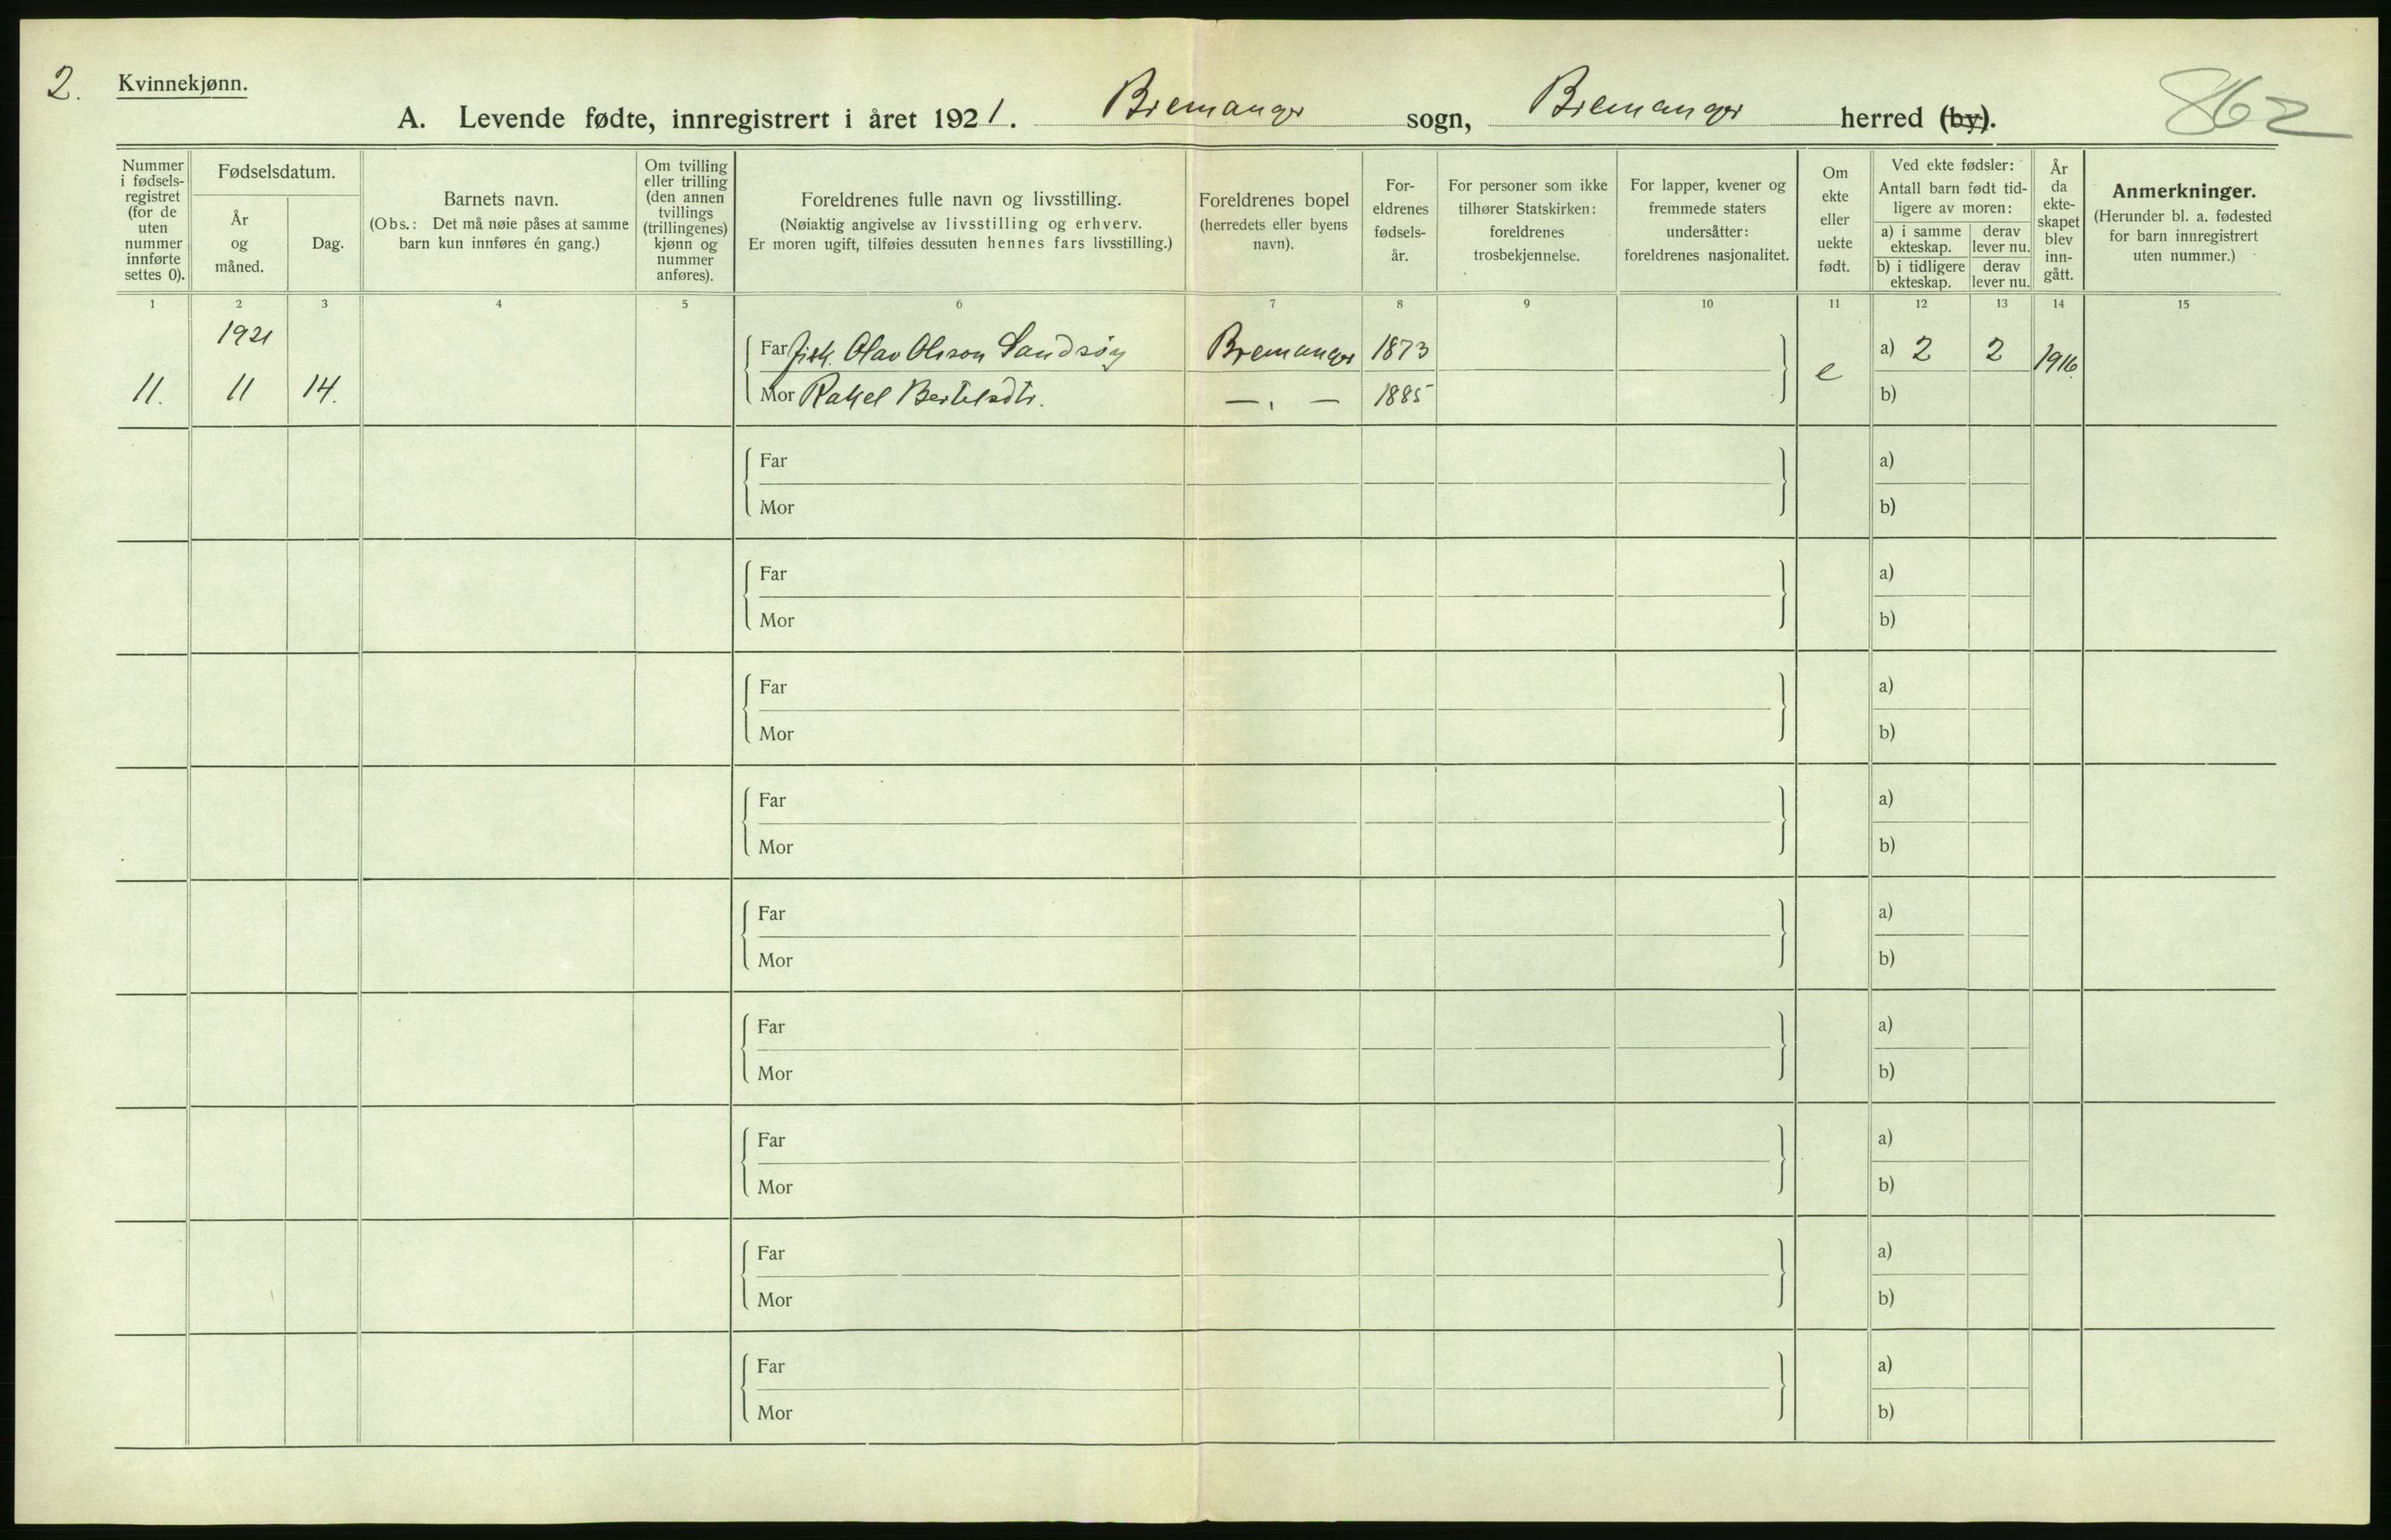 2. Kvinnekjønn.
862
A. Levende fødte, innregistrert i året 1921. Bremanger sogn, Bremanger herred (by).
Nummer
i fødsels-
registret
(for de
uten
nummer
innførte
settes 0).
Fødselsdatum.
År
og
måned.
Dag.
Barnets navn.
(Obs.: Det må nøie påses at samme
barn kun innføres én gang.)
Om tvilling
eller trilling
(den annen
tvillings
(trillingenes)
kjønn og
nummer
anføres).
Foreldrenes fulle navn og livsstilling.
(Nøiaktig angivelse av livsstilling og erhverv.
Er moren ugift, tilføies dessuten hennes fars livsstilling.)
Foreldrenes bopel
(herredets eller byens
navn).
For-
eldrenes
fødsels-
år.
For personer som ikke
tilhører Statskirken:
foreldrenes
trosbekjennelse.
For lapper, kvener og
fremmede staters
undersåtter:
foreldrenes nasjonalitet.
Om
ekte
eller
uekte
født.
Ved ekte fødsler:
Antall barn født tid-
ligere av moren:
a) i samme
ekteskap.
derav
lever nu.
b) i tidligere
ekteskap.
derav
lever nu.
År
da
ekte-
skapet
blev
inn-
gått.
Anmerkninger.
(Herunder bl. a. fødested
for barn innregistrert
uten nummer.)
1 2 3 4 5 6 7 8 9 10 11 12 13 14 15
1921
Far fisk. Olav Olsson Sandsøy Bremanger 1873 a) 2 2 1916
11. 11 14. e
Mor Rakel Bertelsdtr. — . — 1885 b)
Far a)
Mor b)
Far a)
Mor b)
Far a)
Mor b)
Far a)
Mor b)
Far a)
Mor b)
Far a)
Mor b)
Far a)
Mor b)
Far a)
Mor b)
Far a)
Mor b)